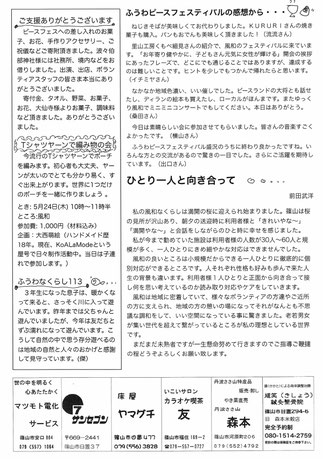 ご支援ありがとうございます
ピースフェスへの差し入れのお菓
子、お花、手作りアクセサリー、ご
祝儀などご寄附頂きました。波々伯
部神社様には社務所、境内などをお
借りしました。出演、出店、ボラン
ティアスタッフの皆さま本当にあり
がとうございました。
寄付金、タオル、野菜、お菓子、
お花、大仙寺様よりお菓子、調味料
など頂きました。ありがとうござい
ます。
Tシャツヤーンで編み物の会
今流行のTシャツヤーンでポーチ
を編みます。初心者も大丈夫。ヤー
ンが太いのでとても分かり易く、す
ぐ出来上がります。世界に1つだけ
のポーチを一緒に作りましょう。
とき:5月24日(木)10時〜11時半
ところ:風和
参加費:1,000円(材料込み)
講師:大西萌絵(ハンドメイド歴
18年。現在、KoALaModeという
屋号で日々制作活動中。当日は子連
れで参加します。)
ふうわなくらし113
3年生になった息子は、暖かくな
って来ると、さっそく川に入って遊
んでいます。昨年までは父ちゃんと
遊んでいましたが、今年は友だちと
ずぶ濡れになって遊んでいます。こ
うして自然の中で思う存分遊べるの
は地域の自然と人々のおかげと感謝
して見守っています。(傑)
ふうわピースフェスティバルの感想から・・・
ねじきそばが美味しくてお代わりしました。KURURIさんの焼き
菓子も購入。パンもおでんも美味しく頂きました!(流流さん)
里山工房くもべ組見さんの紹介で、風和のフェスティバルに来ていま
す。「お年寄り健やかに、子どもさん元気に女性が輝ける」開会の挨拶に
あったフレーズで、どこにでも通じることではありますが、達成するの
は難しいことです。ヒントを少しでもつかんで帰れたらと思います。
(イチミヤさん)
なかなか地元色濃い、いい催しでした。ピースランドの大將とも話せ
たし、ディランの絵本も買えたし、ローカルがほんまです。またゆっくり
風和でミニミニコンサートでもしてください。本日はありがとう。
(桑田さん)
今日は素晴らしい会に参加させてもらいました。皆さんの音楽すごく
よかったです。(横山さん)
ふうわピースフェスティバル盛況のうちに終わり良かったですね。い
ろんな方との交流があるので驚きの一日でした。さらにご活躍を期待し
ています。
ひとり一人と向き合って
前田武洋
私の風和なくらしは満開の桜に迎えられ始まりました。篠山は桜
の名所が沢山あり、朝夕の送迎時に利用者様と「きれいな〜」
「満開やな〜」と会話をしながらのひと時に心を癒されました。
私が今まで勤めていた施設は利用者様の人数が30人〜60人と規
模が多く、一人ひとりにきめ細やかな対応はできませんでした。
風和の良いところは小規模だからできる一人ひとりに徹底的に個
別対応ができるところです。人それぞれ性格も好みも歩んで来た人
生の背景も違います。利用者様一人ひとりと正面から向き合って接
し何を思い考えているのか読み取り対応やケアをしていきます。
風和は地域に密着していて、様々なボランティアの方達やご近所
の方に支えられ、地域の方の憩いの場になっていてそれがなんとも不
思議な調和をしていて、いい空間になっていると驚きました。老若男女
が集い世代を超えて繋がっているところが私の理想としている世界
です。
まだまだ未熟者ですが一生懸命努めて行きますのでご指導ご鞭撻
の程どうぞよろしくお願い致します。
世の中を明るく
心あたたかく
マツモト電化
サービス
篠山市宮田304
7
サンセブン
〒669-2441
篠山市
床屋
ヤマグチ
079(556)3828
いこいサロン
カラオケ喫茶
友
篠山市
丹波ささ山特産品
やき栗直売
丹波ささやま
森本
篠山市河原町206
079-552-0962
成实(きしょう)
鍼灸整骨院
篠山市日置294-6
日 森本米穀店
完全予約制
080-1514-2759